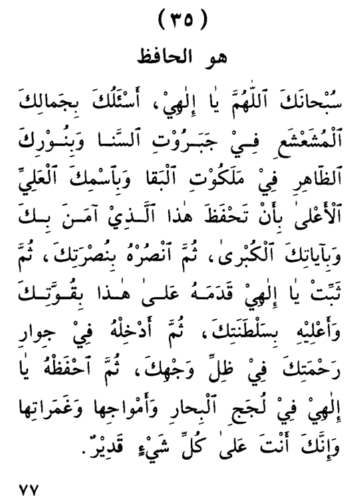 (٣٥)
هو الحافظ
سُبْحانَكَ اَللّٰهُمَّ يٰا إِلٰهِيْ، أَسْئَلُكَ بِجَمالِكَ
ٱلْمُشَعْشَعِ فِيْ جَبَرُوْتِ ٱلسَّنا وَبِنُوْرِكَ
ٱلظّاهِرِ فِيْ مَلَكُوْتِ ٱلْبَقا وَبِٱسْمِكَ ٱلْعَلِيِّ
ٱلْأَعْلىٰ بِأَنْ تَحْفَظَ هٰذا ٱلَّذِيْ آمَنَ بِكَ
وَبِآياتِكَ ٱلْكُبْرىٰ، ثُمَّ ٱنْصُرْهُ بِنُصْرَتِكَ، ثُمَّ
ثَبِّتْ يٰا إِلٰهِيْ قَدَمَهُ عَلىٰ هٰذا بِقُوَّتِكَ
وَأَعْلِيْهِ بِسَلْطَنَتِكَ، ثُمَّ أَدْخِلْهُ فِيْ جِوارِ
رَحْمَتِكَ فِيْ ظِلِّ وَجْهِكَ، ثُمَّ ٱحْفَظْهُ يٰا
إِلٰهِيْ فِيْ لُجَجِ ٱلْبِحارِ وَأَمْواجِها وَغَمَراتِها
وَإِنَّكَ أَنْتَ عَلىٰ كُلِّ شَيْءٍ قَدِيْرٌ.
٧٧